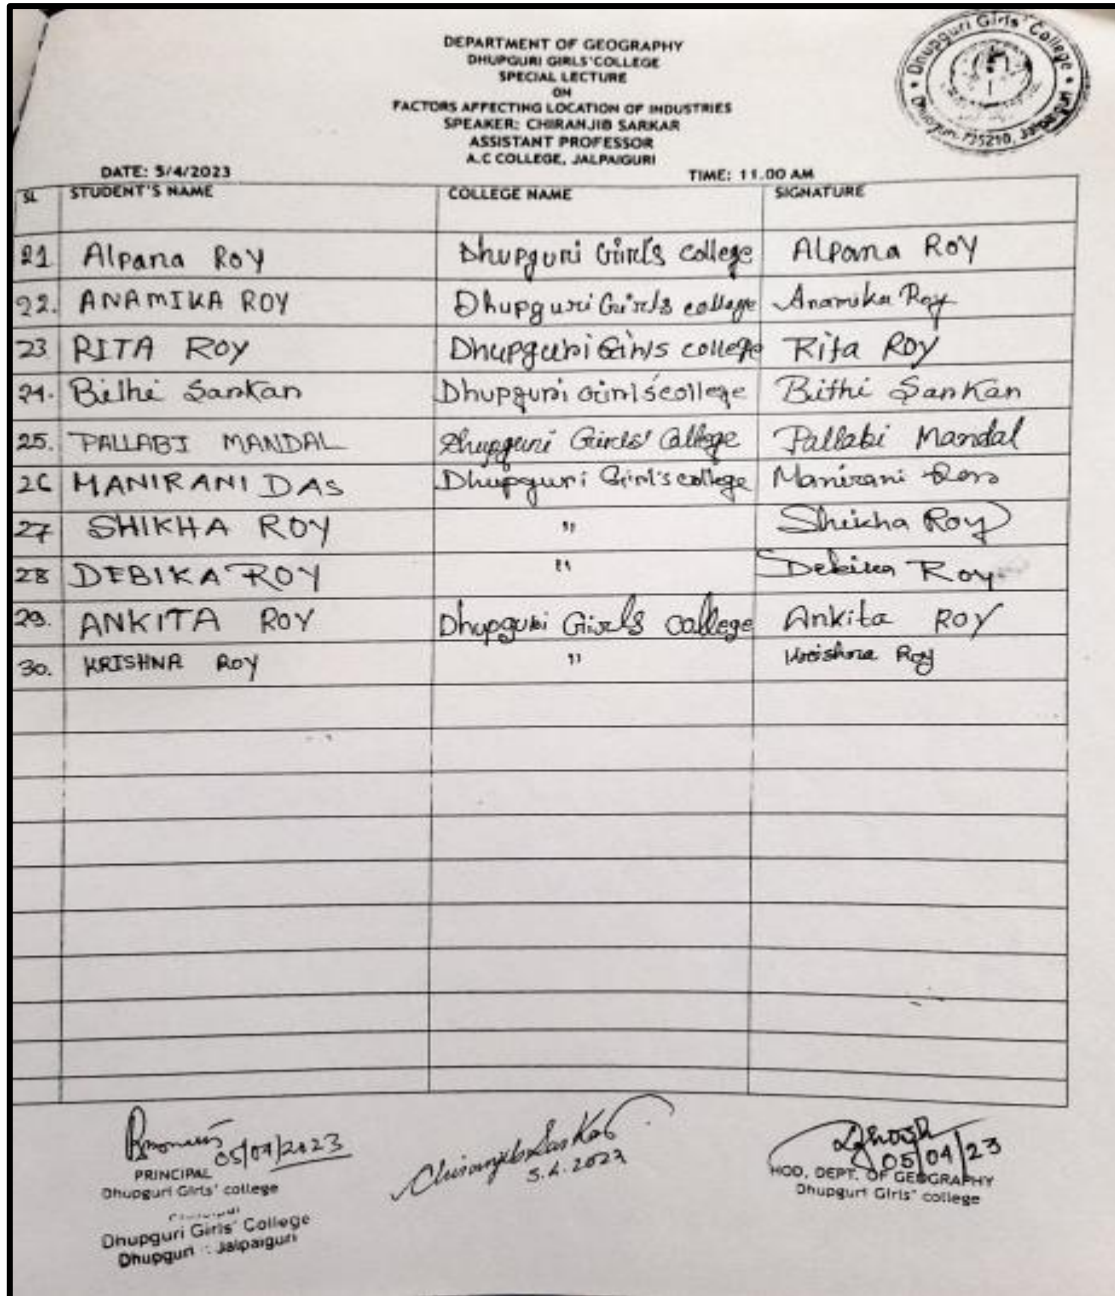 DEPARTMENT OF GEOGRAPHY
DHUPGURI GIRLS'COLLEGE
SPECIAL LECTURE
ON
FACTORS AFFECTING LOCATION OF INDUSTRIES
SPEAKER: CHIRANJIB SARKAR
ASSISTANT PROFESSOR
A.C COLLEGE, JALPAIGURI
Dhupguri Girls' College
735210
DATE: 5/4/2023 TIME: 11.00 AM
SL STUDENT'S NAME COLLEGE NAME SIGNATURE
21 Alpana Roy Dhupguri Girl's college Alpana Roy
22. ANAMIKA ROY Dhupguri Girls college Anamika Roy
23 RITA ROY Dhupguri Girls college Rita Roy
24. Bithi Sarkar Dhupguri Girlscollege Bithi Sarkar
25. PALLABI MANDAL Dhupguri Girls' College Pallabi Mandal
26 MANIRANI DAS Dhupguri Girl's college Manirani Das
27 SHIKHA ROY " Shikha Roy
28 DEBIKA ROY " Debika Roy
29. ANKITA ROY Dhupguri Girls college Ankita Roy
30. KRISHNA ROY " Krishna Roy
05/04/2023
PRINCIPAL
Dhupguri Girls' college
Principal
Dhupguri Girls' College
Dhupguri : Jalpaiguri
Chiranjib Sarkar
5.4.2023
05/04/23
HOD, DEPT. OF GEOGRAPHY
Dhupguri Girls' college